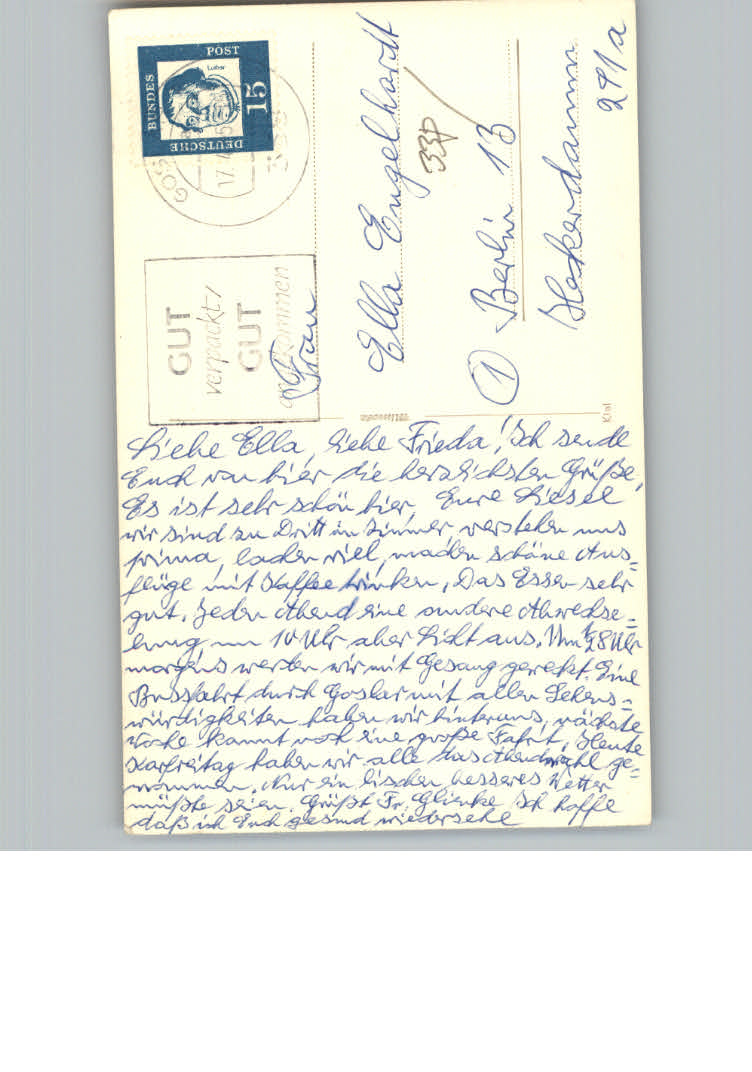 DEUTSCHE
BUNDES
POST
Luther
15
GOS
17.
338
GUT
verpackt/
GUT
angekommen
Frau
Ella Engelhardt
33P
① Berlin 13
Heckerdamm
291a
Krüll
Liebe Ella, liebe Frieda! Ich sende
Euch von hier die herzlichsten Grüße,
Es ist sehr schön hier, Eure Liesel
wir sind zu Dritt im Zimmer verstehen uns
prima, lachen viel, machen schöne Aus=
flüge mit Kaffee trinken, Das Essen sehr
gut. Jeden Abend eine andere Abwechse=
lung um 10 Uhr aber Licht aus. Um ½8 Uhr
morgens werden wir mit Gesang geweckt. Eine
Busfahrt durch Goslar mit allen Sehens=
würdigkeiten haben wir hinter uns, nächste
Woche kommt noch eine große Fahrt, Heute
Karfreitag haben wir alle das Abendmahl ge=
nommen. Nur ein bischen besseres Wetter
müßte seien. Grüßt Fr. Glienke Ich hoffe
daß ich Euch gesund wiedersehe